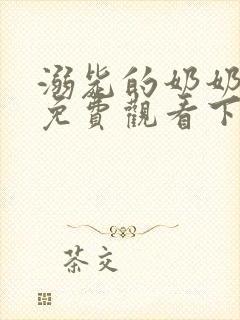 溺毙的奶奶
免費觀看下
茶交